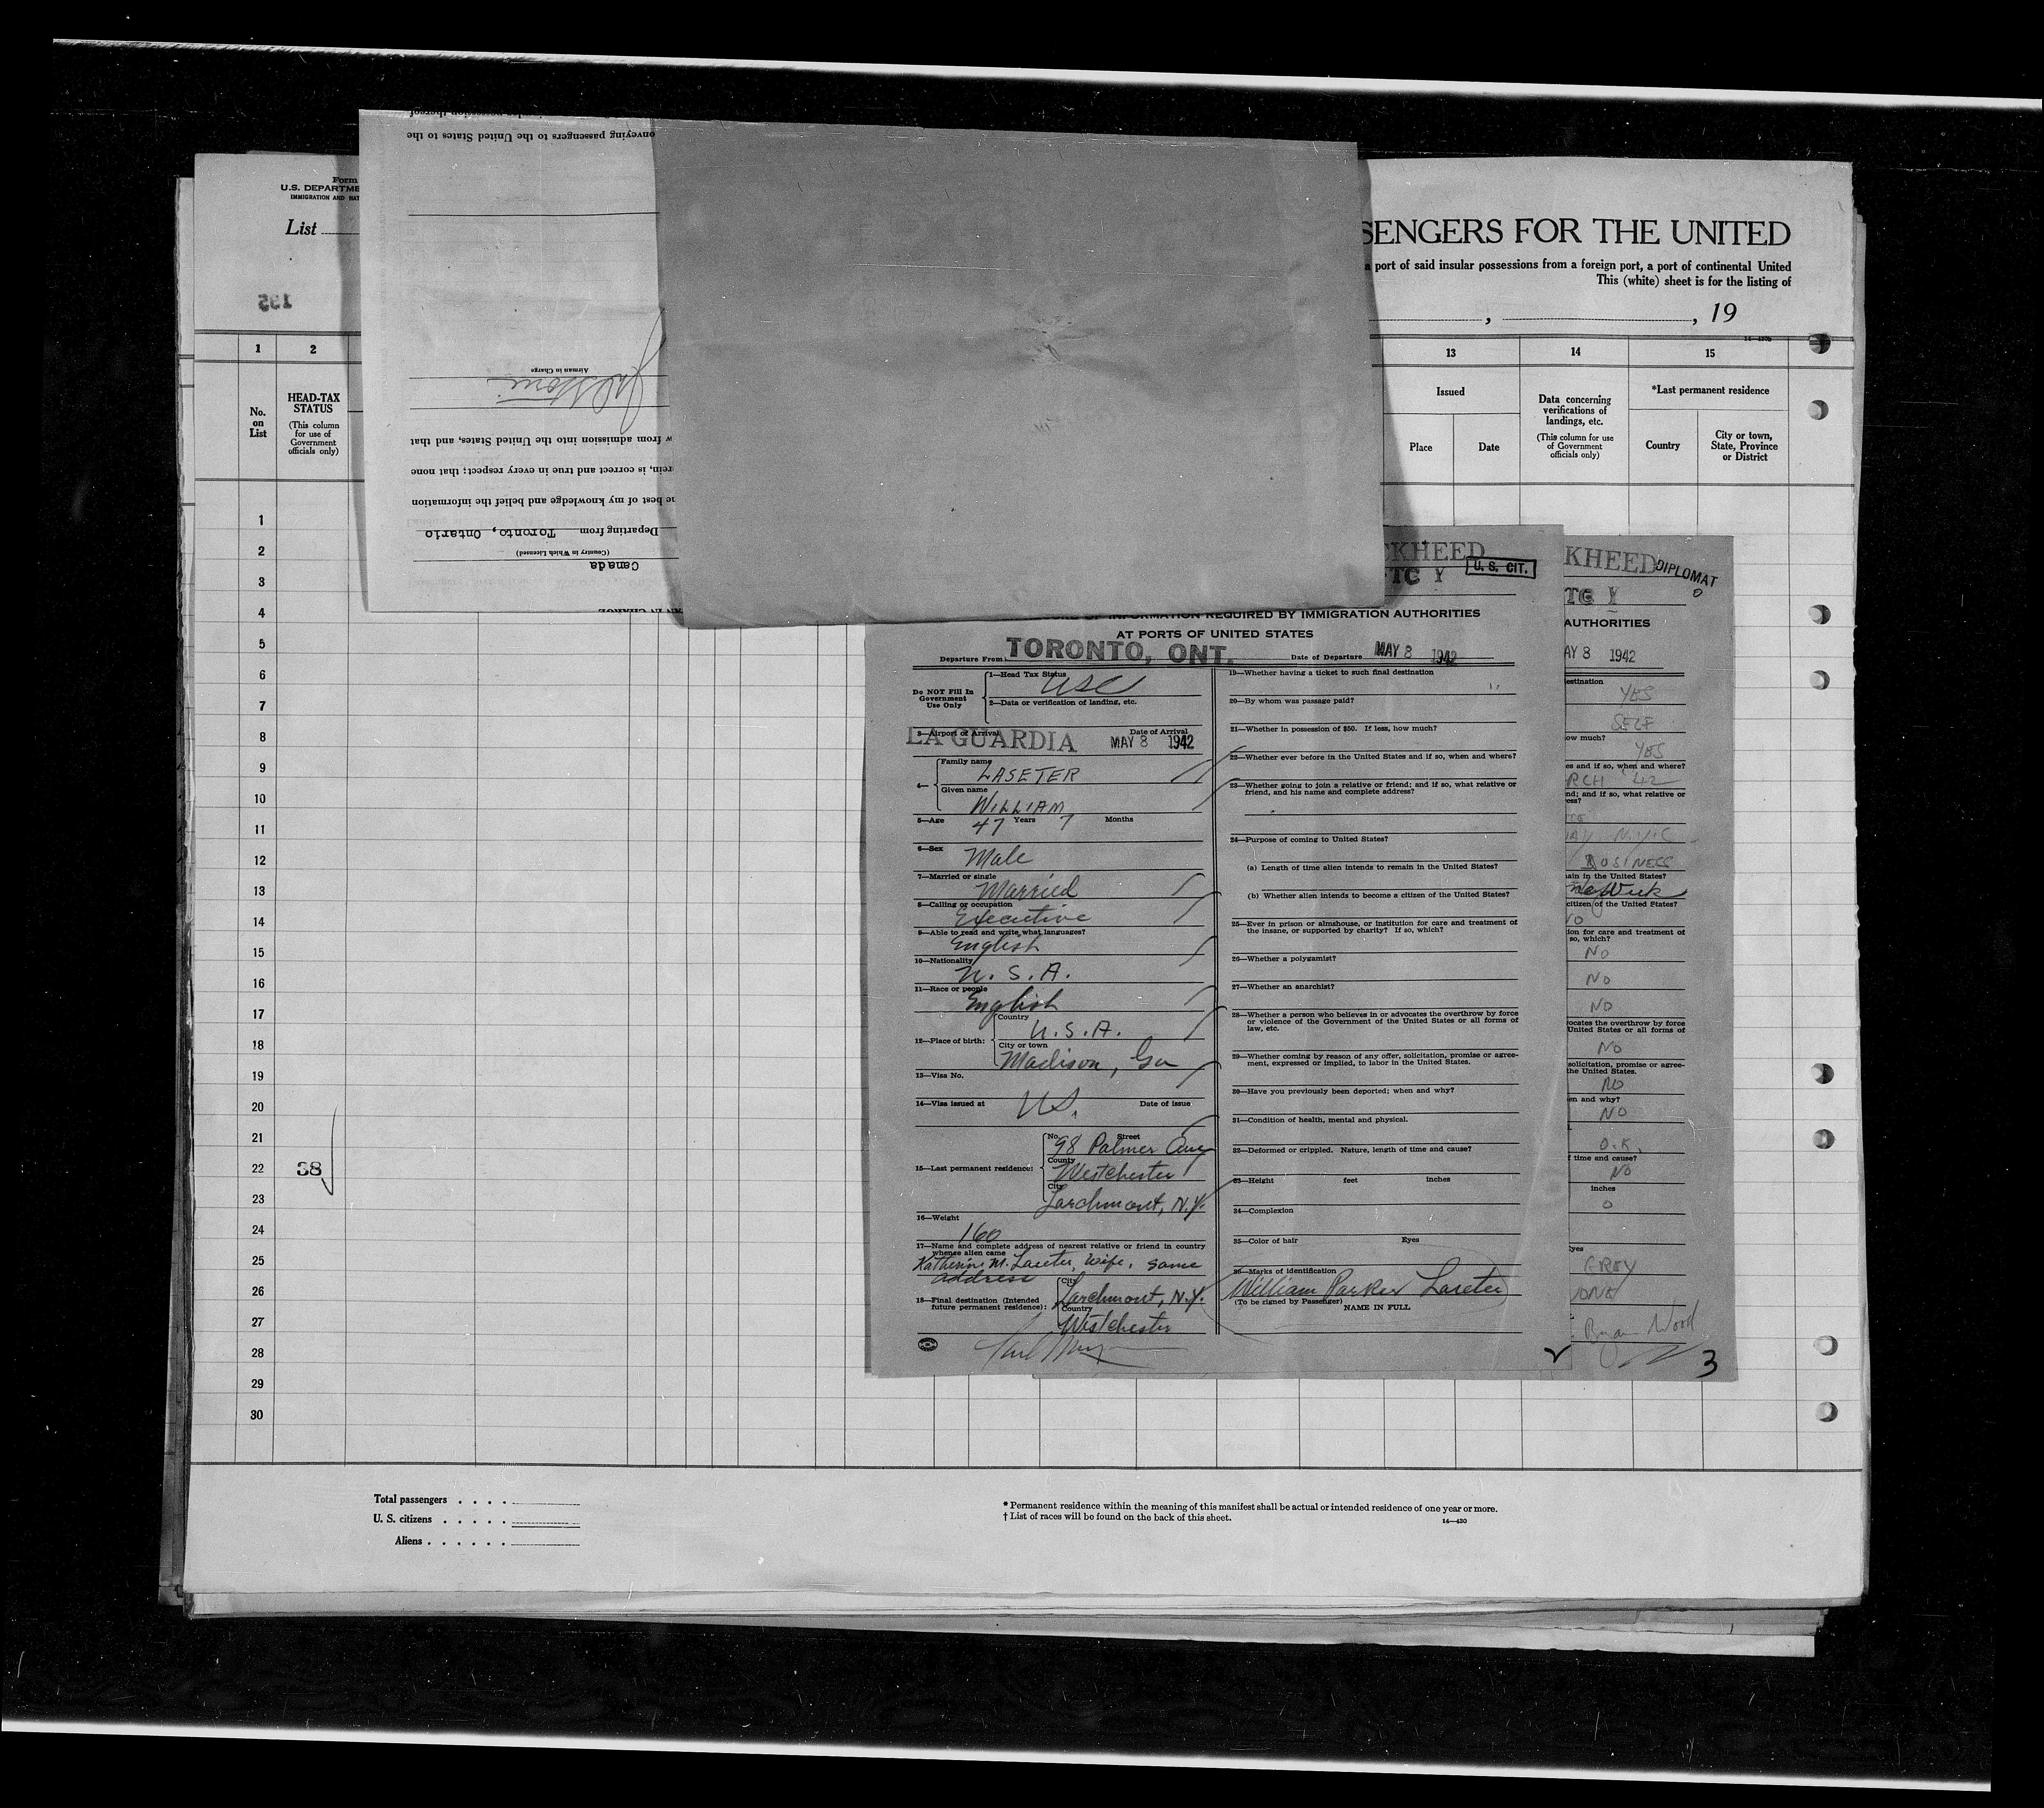 Form
U.S. DEPARTME
IMMIGRATION AND NAT
List
195
onveying passengers to the United States to the
Airman in Charge
w from admission into the United States, and that
rein, is correct and true in every respect; that none
he best of my knowledge and belief the information
Departing from Toronto, Ontario
(Country in Which Licensed)
Canada
SENGERS FOR THE UNITED
a port of said insular possessions from a foreign port, a port of continental United
This (white) sheet is for the listing of
, , 19
1 2 13 14 15
No. on List
HEAD-TAX STATUS
(This column for use of Government officials only)
Issued
Place Date
Data concerning verifications of landings, etc.
(This column for use of Government officials only)
*Last permanent residence
Country
City or town, State, Province or District
1
2
3
4
5
6
7
8
9
10
11
12
13
14
15
16
17
18
19
20
21
22 38
23
24
25
26
27
28
29
30
CKHEED
TC Y U. S. CIT.
INFORMATION REQUIRED BY IMMIGRATION AUTHORITIES
AT PORTS OF UNITED STATES
Departure From TORONTO, ONT. Date of Departure MAY 8 1942
Do NOT Fill In Government Use Only
1—Head Tax Status USC
2—Data or verification of landing, etc.
3—Airport of Arrival Date of Arrival
LA GUARDIA MAY 8 1942
4— Family name LASETER
Given name WILLIAM
5—Age 47 Years 7 Months
6—Sex Male
7—Married or single Married
8—Calling or occupation Executive
9—Able to read and write what languages? English
10—Nationality U. S. A.
11—Race or people English
12—Place of birth: Country U.S.A.
City or town Madison, Ga
13—Visa No.
14—Visa issued at US. Date of issue
15—Last permanent residence: No. Street 98 Palmer Ave
County Westchester
City Larchmont, N.Y.
16—Weight 160
17—Name and complete address of nearest relative or friend in country whence alien came
Katherine M. Laseter, Wife, same address
18—Final destination (Intended future permanent residence): City Larchmont, N.Y.
Country Westchester
19—Whether having a ticket to such final destination
20—By whom was passage paid?
21—Whether in possession of $50. If less, how much?
22—Whether ever before in the United States and if so, when and where?
23—Whether going to join a relative or friend; and if so, what relative or friend, and his name and complete address?
24—Purpose of coming to United States?
(a) Length of time alien intends to remain in the United States?
(b) Whether alien intends to become a citizen of the United States?
25—Ever in prison or almshouse, or institution for care and treatment of the insane, or supported by charity? If so, which?
26—Whether a polygamist?
27—Whether an anarchist?
28—Whether a person who believes in or advocates the overthrow by force or violence of the Government of the United States or all forms of law, etc.
29—Whether coming by reason of any offer, solicitation, promise or agreement, expressed or implied, to labor in the United States.
30—Have you previously been deported; when and why?
31—Condition of health, mental and physical.
32—Deformed or crippled. Nature, length of time and cause?
33—Height feet inches
34—Complexion
35—Color of hair Eyes
36—Marks of identification
William Parker Laseter
(To be signed by Passenger) NAME IN FULL
KHEED DIPLOMAT
TC Y
AUTHORITIES
AY 8 1942
estination
YES
SELF
ow much?
YES
es and if so, when and where?
RCH '42
nd; and if so, what relative or
ess?
AY N.Y.C
BUSINESS
ain in the United States?
One Week
citizen of the United States?
NO
ion for care and treatment of
so, which?
NO
NO
NO
vocates the overthrow by force
United States or all forms of
NO
solicitation, promise or agree-
the United States.
NO
en and why?
NO
O.K.
f time and cause?
NO
inches
0
Eyes
GREY
NONE
Wood
3
Total passengers . . . .
U. S. citizens . . . . .
Aliens . . . . . .
* Permanent residence within the meaning of this manifest shall be actual or intended residence of one year or more.
† List of races will be found on the back of this sheet.
14—430